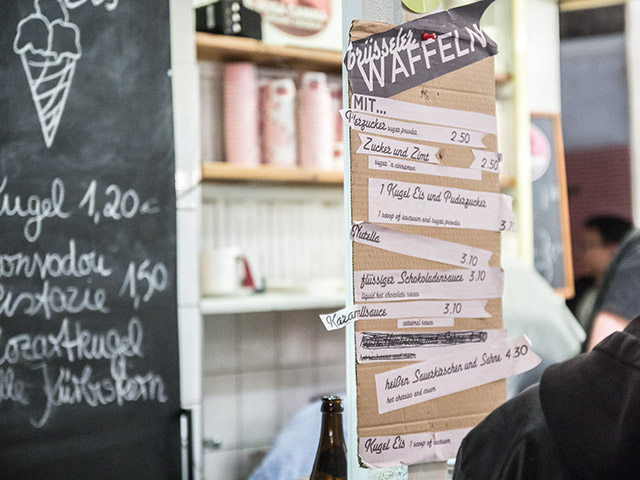 Kugel 1,20
1,50
Pistazie
Mozartkugel
Kürbiskern
brüsseler
WAFFELN
MIT...
Puderzucker sugar powda 2.50
Zucker und Zimt 2.50
sugar 'n cinnamon
1 Kugel Eis und Puderzucker
1 scoop of icecream and sugar powda 3.70
Nutella 3.10
flüssiger Schokoladensauce 3.10
liquid hot chocolate sauce
Karamellsauce 3.10
caramel sauce
heißen Sauerkirschen und Sahne 4.30
hot cherries and cream
Kugel Eis 1 scoop of icecream